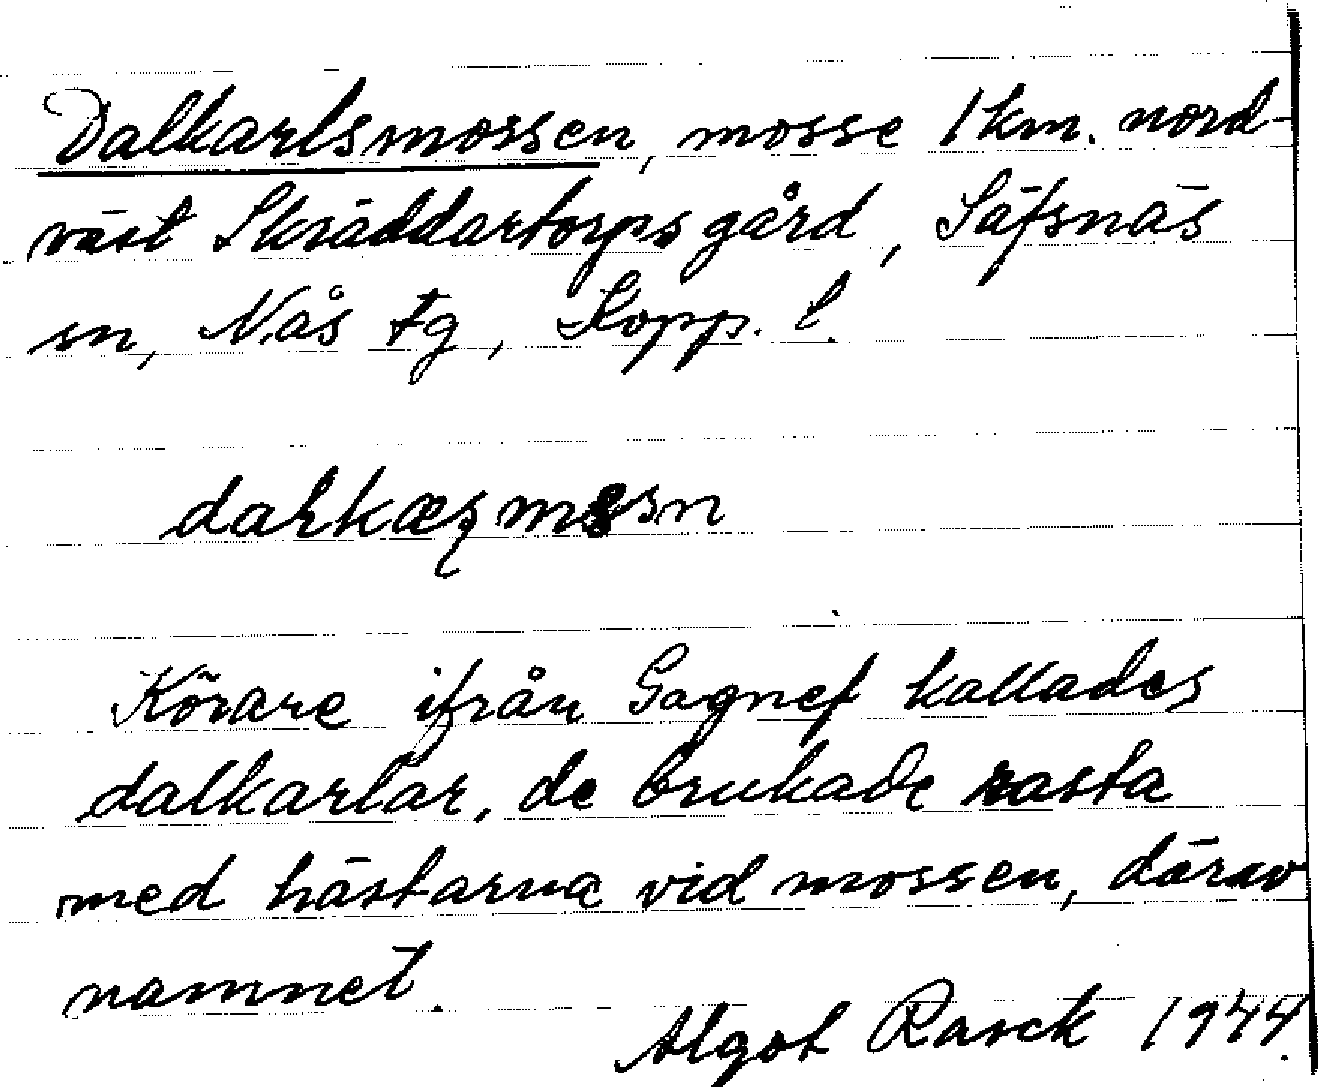 Dalkarlsmossen, mosse 1 km. nord-
väst Skräddartorps gård, Säfsnäs
sn, Nås tg, Kopp. l.

Körare ifrån Gagnef kallades
dalkarlar, de brukade rasta
med hästarna vid mossen, därav
namnet.
Algot Rasck 1944.